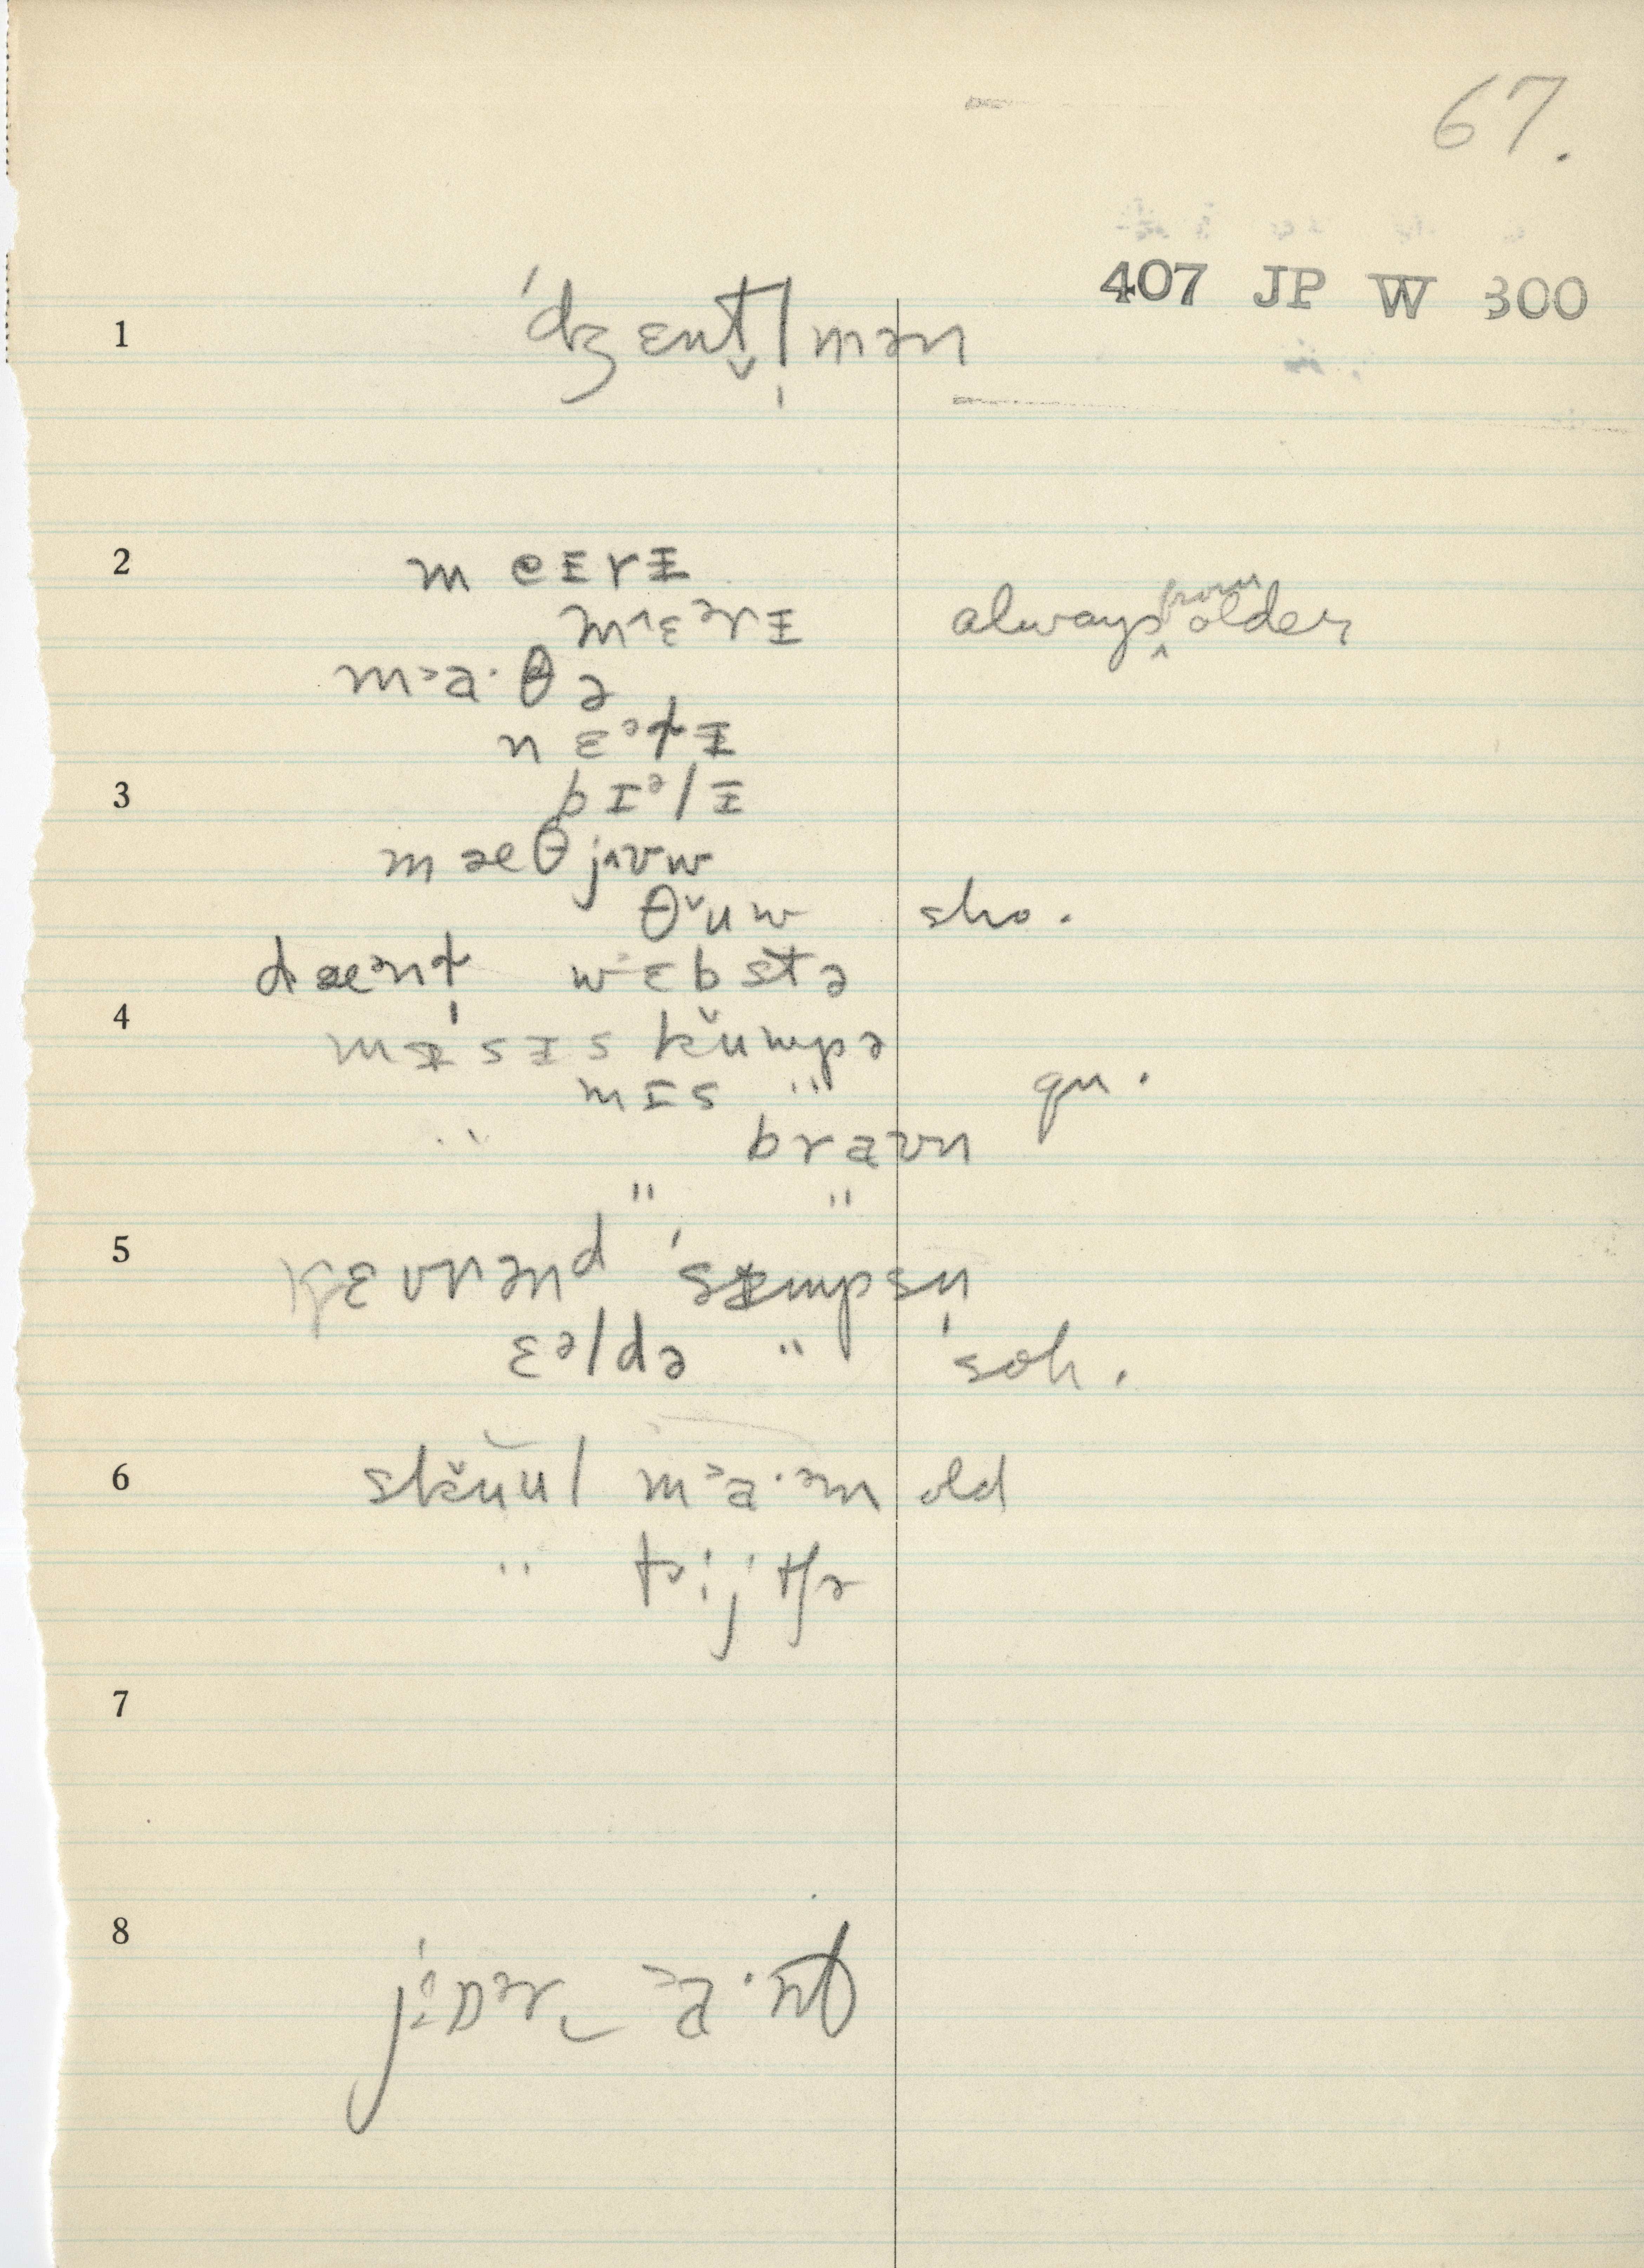 67.
407 JP W 300
1 ˈdʒɛnt̬l̩mən
2 m eɪrᵻ
m˄ɛᵊrᵻ always ^from older
m˃a·θə
nɛᵊt̬ᵻ
3 bɪᵊlᵻ
mæθj˄ʊw
θ˅uw sho.
dæᵊnt̩ wɛbstə
4 mᵻsɪs k̆umpə
mɪs " qu.
" braʊn
" "
5 kɛʊrənd ˈsᵻmpsn̩
ɛᵊldə " soh.
6 sk̆uul m˃a·ᵊm old
" t˅ijtʃə
7
8 jɒᵊr‿˃a·nt